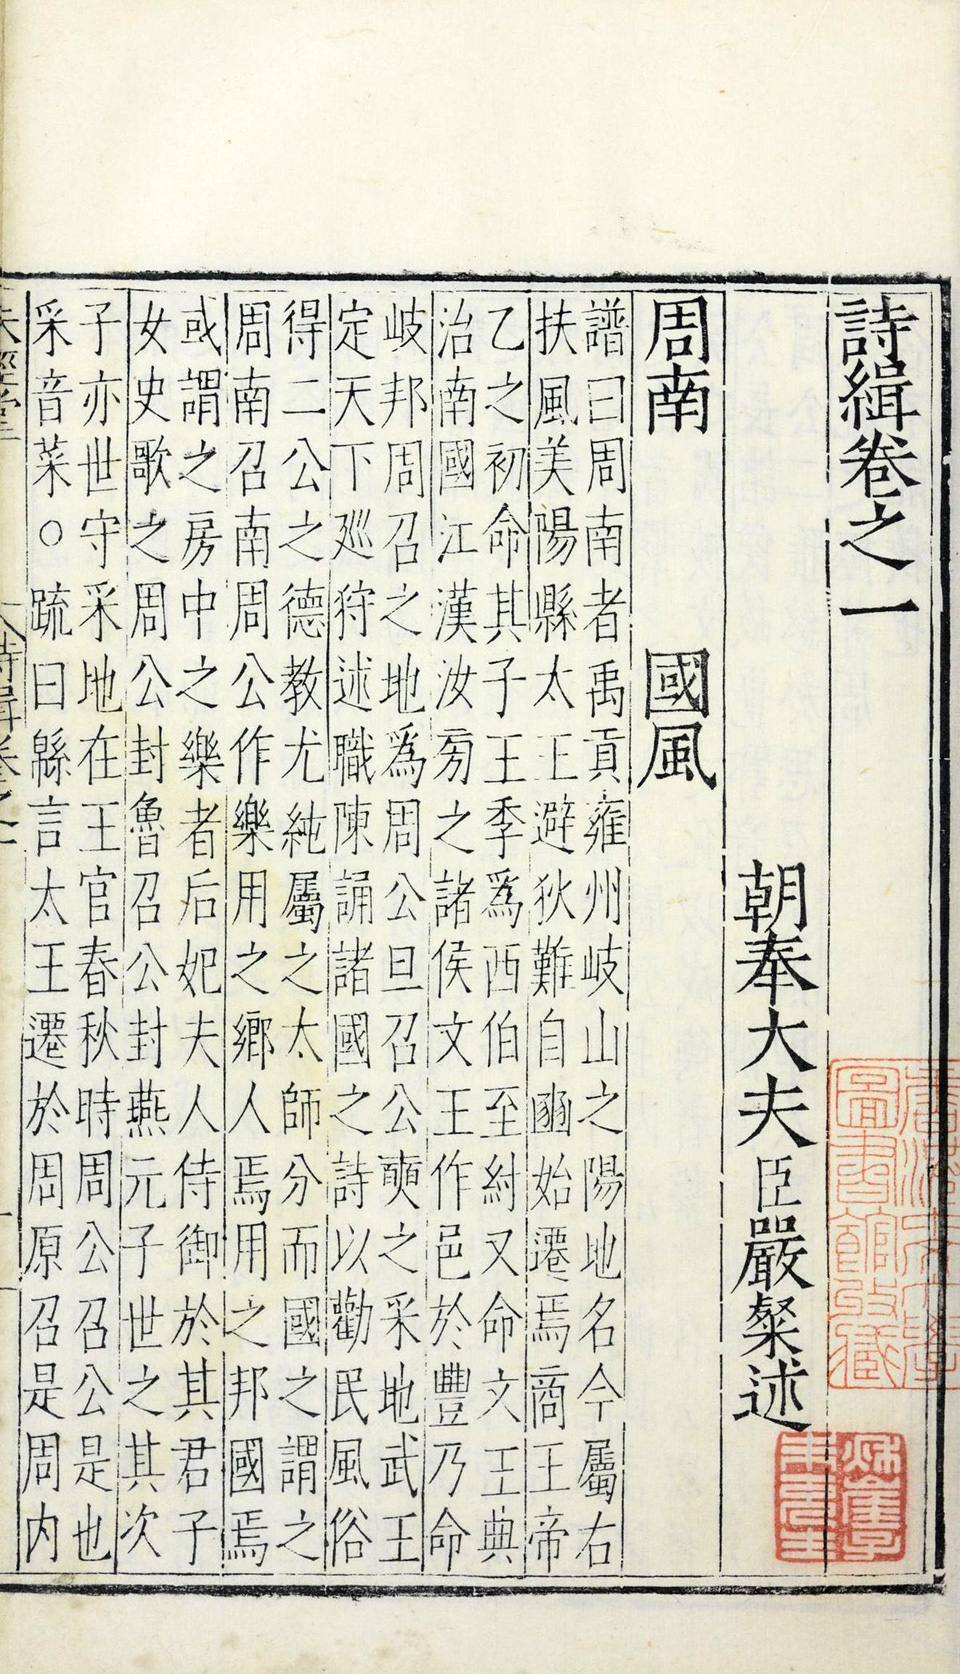 詩緝卷之一
朝奉大夫臣嚴粲述
周南 國風
譜曰周南者禹貢雍州岐山之陽地名今屬右
扶風美陽縣太王避狄難自豳始遷焉商王帝
乙之初命其子王季爲西伯至紂又命文王典
治南國江漢汝旁之諸侯文王作邑於豐乃命
岐邦周召之地爲周公旦召公奭之采地武王
定天下廵狩述職陳誦諸國之詩以勸民風俗
得二公之德教尤純屬之太師分而國之謂之
周南召南周公作樂用之鄉人焉用之邦國焉
或謂之房中之樂者后妃夫人侍御於其君子
女史歌之周公封魯召公封燕元子世之其次
子亦世守采地在王官春秋時周公召公是也
采音菜○疏曰緜言太王遷於周原召是周内
詩緝卷之一
圖書館收藏